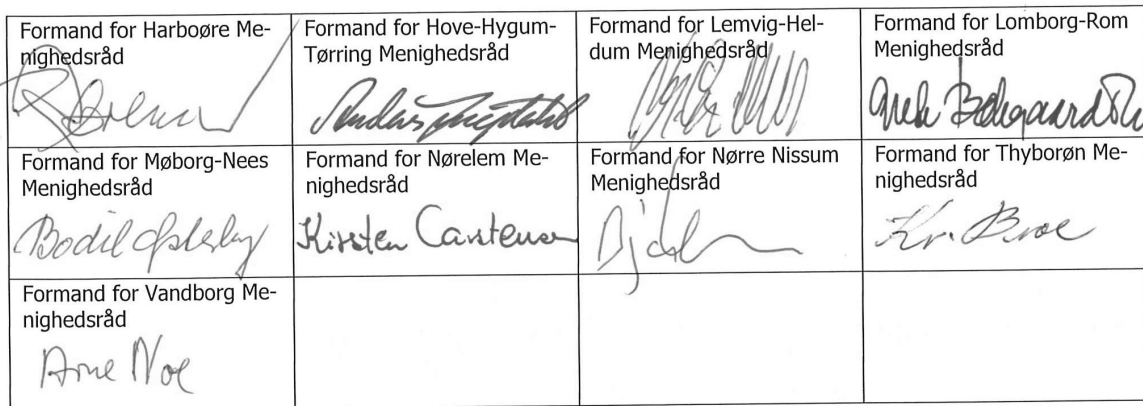 Formand for Harboøre Me-
nighedsråd
Formand for Hove-Hygum-
Tørring Menighedsråd
Anders
Formand for Lemvig-Hel-
dum Menighedsråd
Formand for Lomborg-Rom
Menighedsråd
Formand for Møborg-Nees
Menighedsråd
Bodil
Formand for Nørelem Me-
nighedsråd
Kirsten Carstensen
Formand for Nørre Nissum
Menighedsråd
Formand for Thyborøn Me-
nighedsråd
Kr. Broe
Formand for Vandborg Me-
nighedsråd
Arne Noe